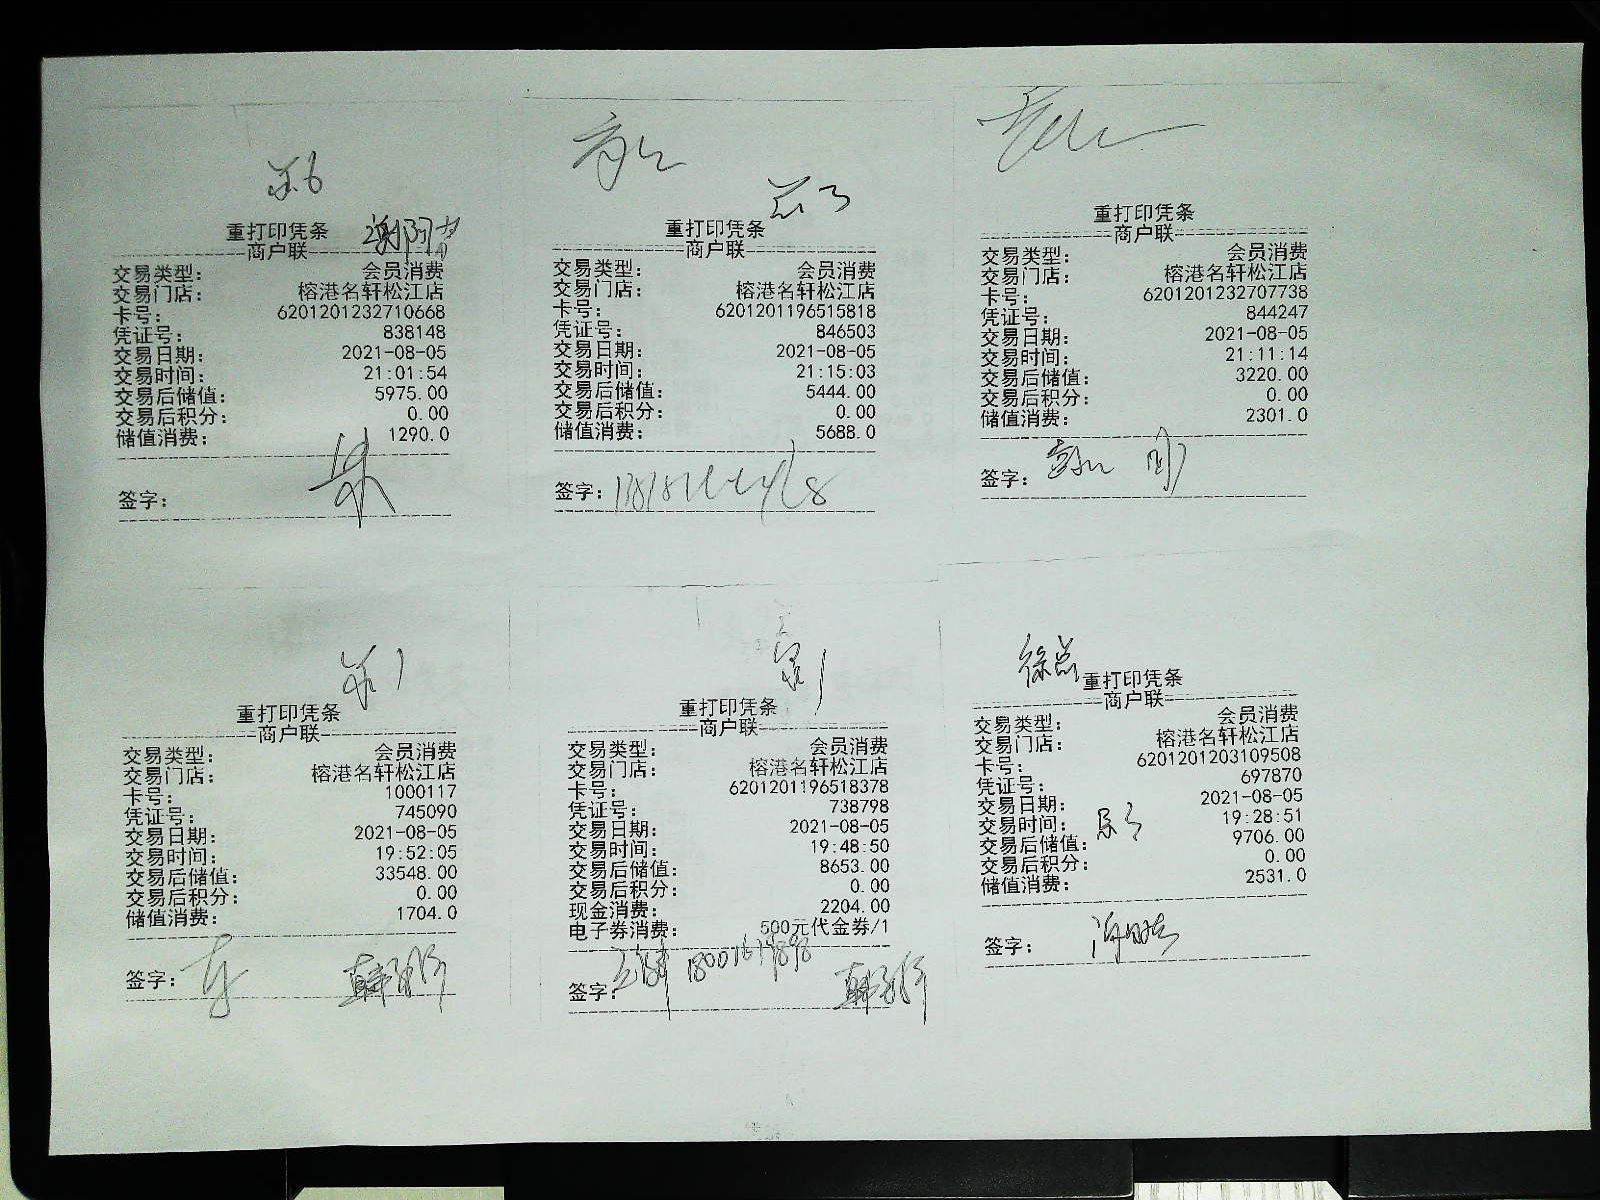 重打印凭条
商户联
交易类型: 会员消费
交易门店: 榕港名轩松江店
卡号: 6201201232710668
凭证号: 838148
交易日期: 2021-08-05
交易时间: 21:01:54
交易后储值: 5975.00
交易后积分: 0.00
储值消费: 1290.0
签字:
重打印凭条
商户联
交易类型: 会员消费
交易门店: 榕港名轩松江店
卡号: 6201201196515818
凭证号: 846503
交易日期: 2021-08-05
交易时间: 21:15:03
交易后储值: 5444.00
交易后积分: 0.00
储值消费: 5688.0
签字:
重打印凭条
商户联
交易类型: 会员消费
交易门店: 榕港名轩松江店
卡号: 6201201232707738
凭证号: 844247
交易日期: 2021-08-05
交易时间: 21:11:14
交易后储值: 3220.00
交易后积分: 0.00
储值消费: 2301.0
签字:
重打印凭条
商户联
交易类型: 会员消费
交易门店: 榕港名轩松江店
卡号: 1000117
凭证号: 745090
交易日期: 2021-08-05
交易时间: 19:52:05
交易后储值: 33548.00
交易后积分: 0.00
储值消费: 1704.0
签字:
重打印凭条
商户联
交易类型: 会员消费
交易门店: 榕港名轩松江店
卡号: 6201201196518378
凭证号: 738798
交易日期: 2021-08-05
交易时间: 19:48:50
交易后储值: 8653.00
交易后积分: 0.00
现金消费: 2204.00
电子券消费: 500元代金券/1
签字:
徐总
重打印凭条
商户联
交易类型: 会员消费
交易门店: 榕港名轩松江店
卡号: 6201201203109508
凭证号: 697870
交易日期: 2021-08-05
交易时间: 19:28:51
交易后储值: 9706.00
交易后积分: 0.00
储值消费: 2531.0
签字: